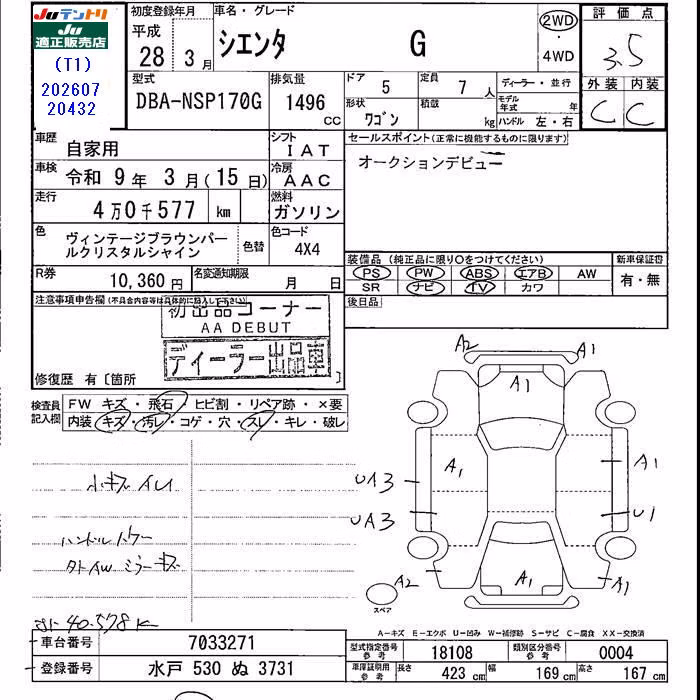 Juテントリ
Ju
適正販売店
(T1)
202607
20432
初度登録年月
平成
28年 3月
車名・グレード
シエンタ G
2WD
・
4WD
評価点
3.5
外装 内装
C C
型式
DBA-NSP170G
排気量
1496 cc
ドア 5
形状 ワゴン
定員 7 人
積載 kg
ディーラー・並行
モデル年式 年
ハンドル 左・右
車歴 自家用
シフト IAT
車検 令和 9年 3月(15日)
冷房 AAC
走行 4万0千577 km
燃料 ガソリン
色 ヴィンテージブラウンパールクリスタルシャイン
色替
色コード 4X4
R券 10,360円
名変通知期限 月 日
セールスポイント(正常に機能するものに限ります)
オークションデビュー
装備品 (純正品に限り○をつけてください)
PS PW ABS エアB AW
SR ナビ TV カワ
新車保証書
有・無
後日品
注意事項申告欄(不具合内容等は具体的に記入して下さい)
初出品コーナー
AA DEBUT
ディーラー出品車
修復歴 有〔箇所 〕
検査員記入欄
FW キズ・飛石・ヒビ割・リペア跡・×要
内装・キズ・汚レ・コゲ・穴・スレ・キレ・破レ
小キズイレ
ハンドル
外AWミラーキズ
40.578K
A2 A1
A1
UA3 A1 A1
UA3 U1
A2 A1 A1
スペア
A-キズ E-エクボ U-凹み W-補修跡 S-サビ C-腐食 XX-交換済
車台番号 7033271
登録番号 水戸 530 ぬ 3731
型式指定番号 参考 18108
類別区分番号 参考 0004
車庫証明用 参考 長さ 423 cm 幅 169 cm 高さ 167 cm